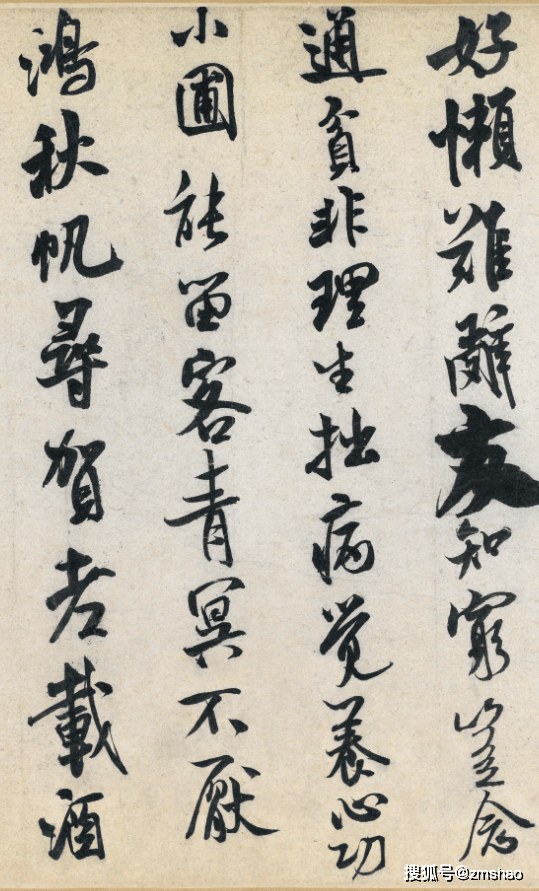 好懶難辭友知窮豈念
通貧非理生拙病覺養心功
小圃能留客青冥不厭
鴻秋帆尋賀老載酒
搜狐号@zmshao